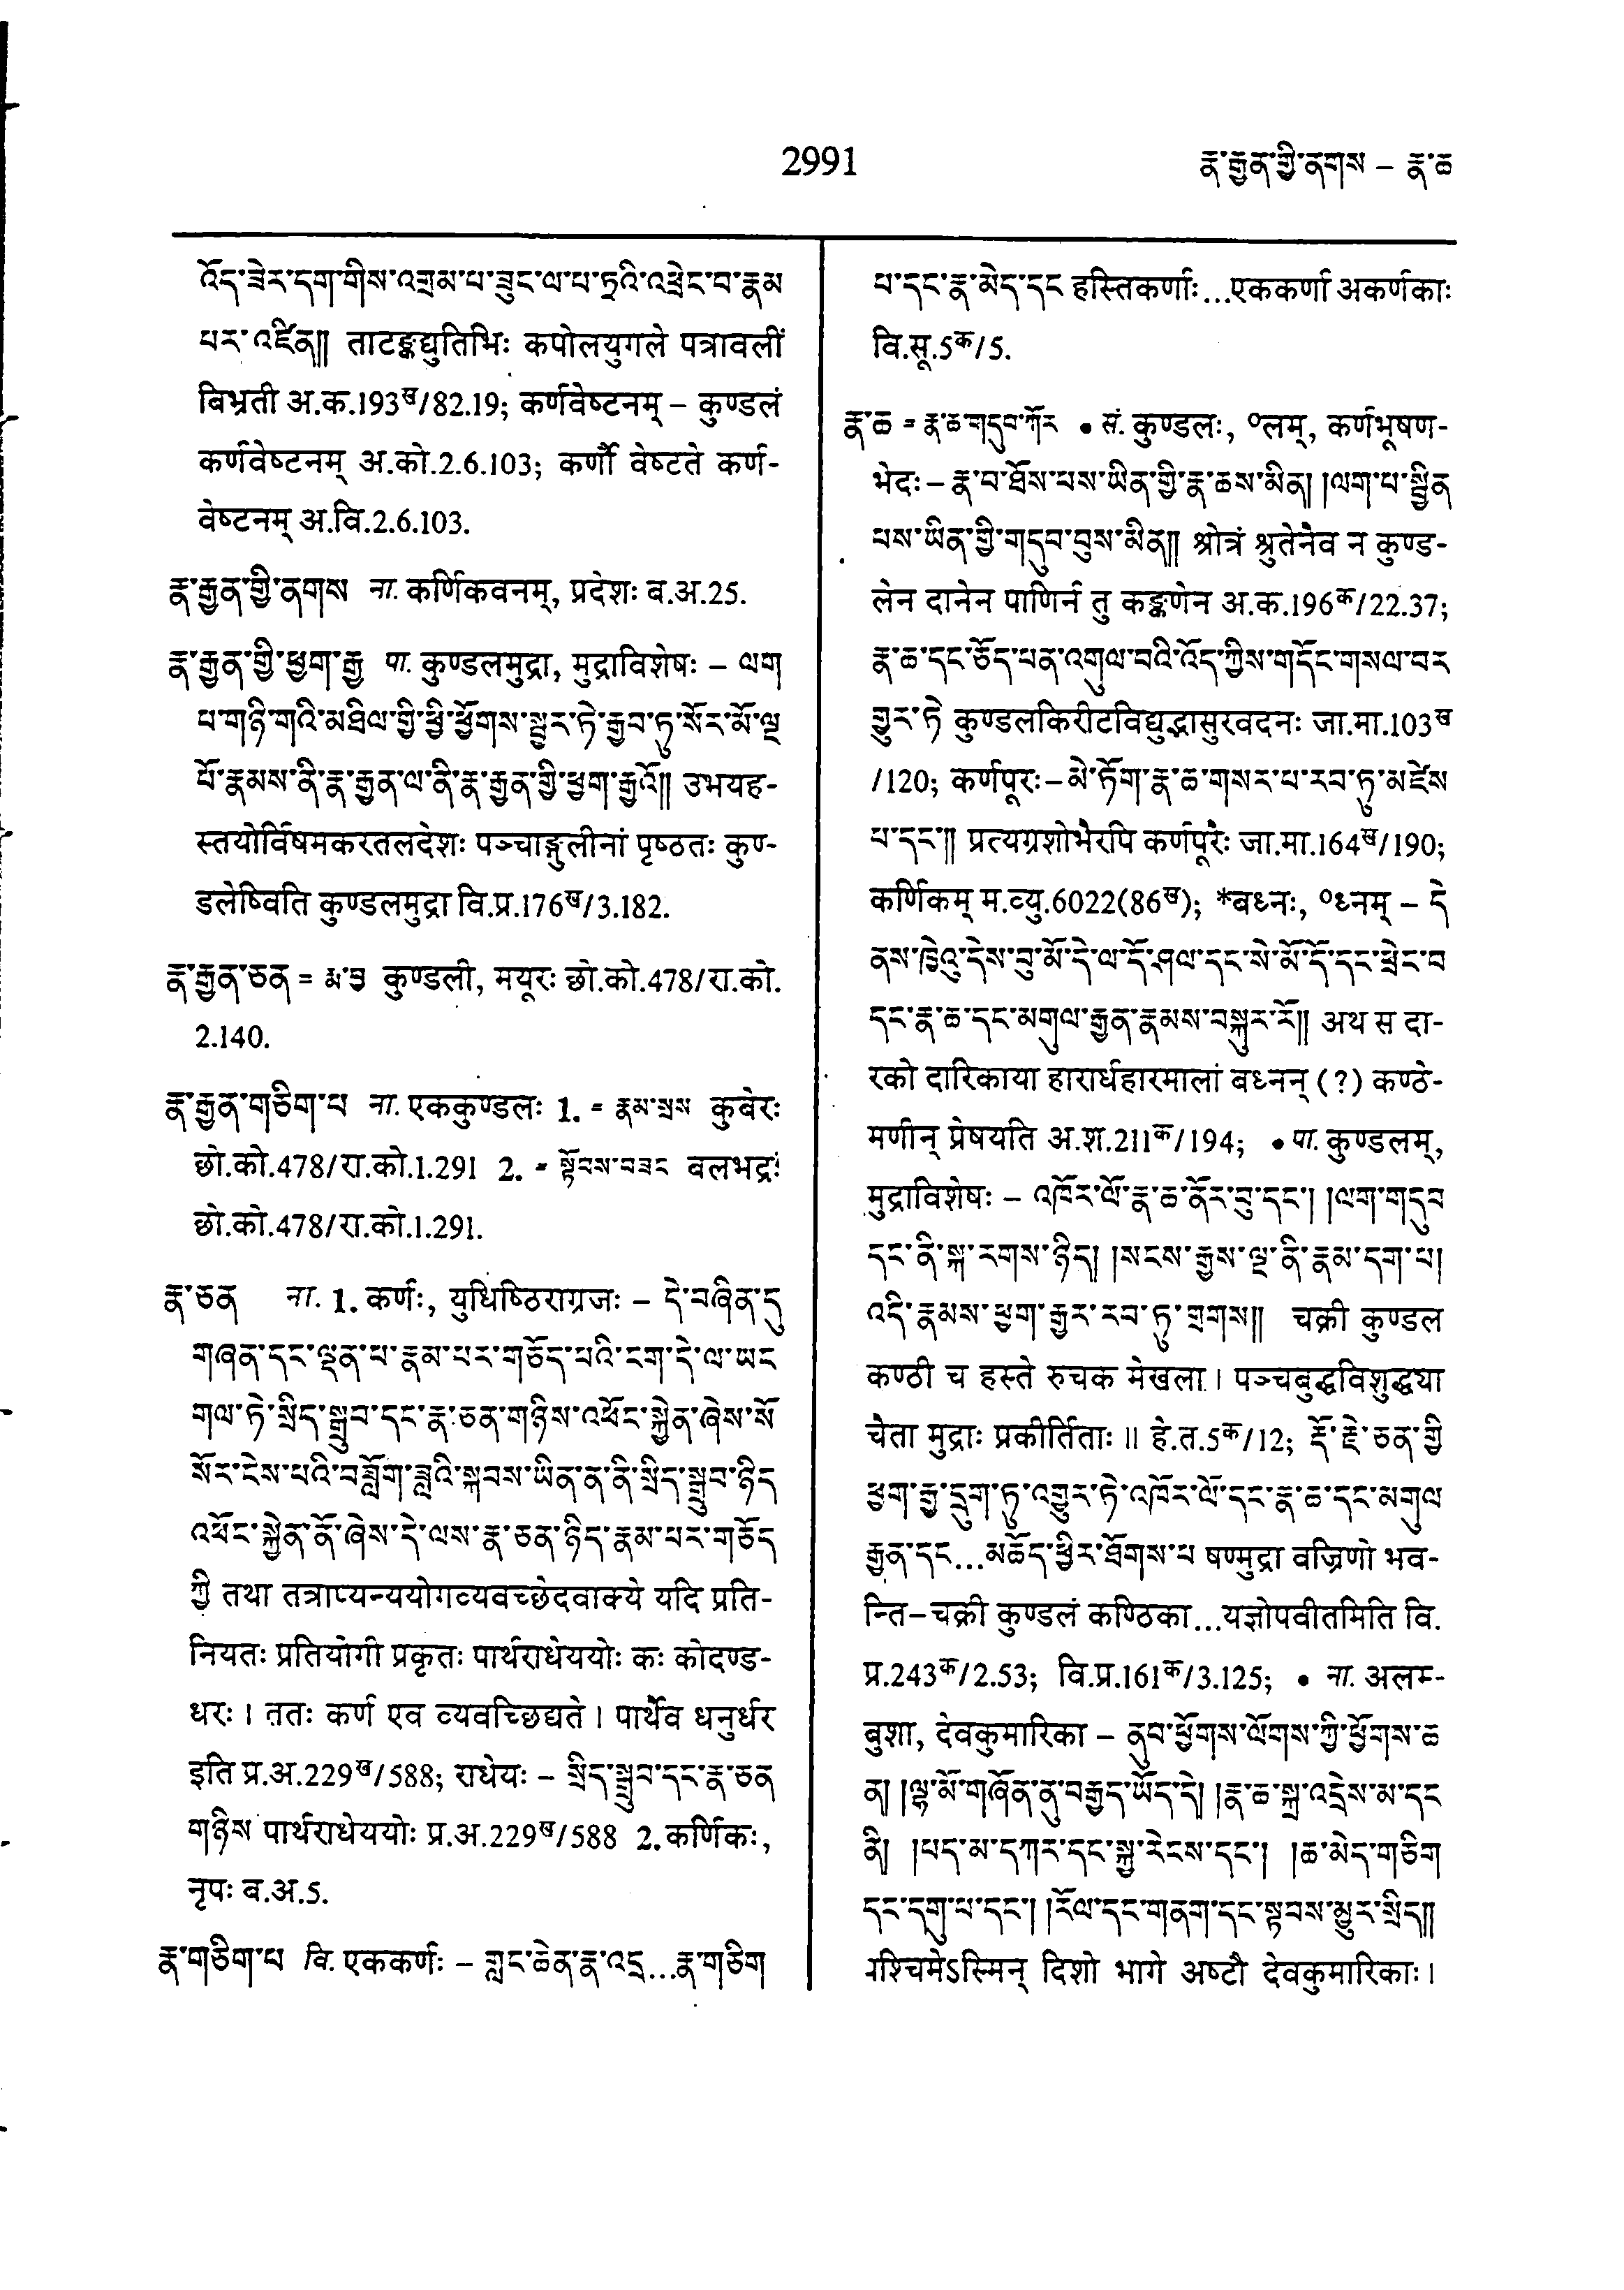 2991
རྣ་རྒྱན་གྱི་ནགས – རྣ་ཆ
འོད་ཟེར་དག་གིས་འགྲམ་པ་ཟུང་ལ་པ་ཏྲའི་འཕྲེང་བ་རྣམ
པར་འཛིན༎ ताटङ्कद्युतिभिः कपोलयुगले पत्रावलीं
बिभ्रती अ.क.193ख/82.19; कर्णवेष्टनम् – कुण्डलं
कर्णवेष्टनम् अ.को.2.6.103; कर्णौ वेष्टते कर्ण-
वेष्टनम् अ.वि.2.6.103.
རྣ་རྒྱན་གྱི་ནགས ना. कर्णिकवनम्, प्रदेशः व.अ.25.
རྣ་རྒྱན་གྱི་ཕྱག་རྒྱ पा. कुण्डलमुद्रा, मुद्राविशेषः – ལག
པ་གཉི་གའི་མཐིལ་གྱི་ཕྱི་ཕྱོགས་སྦྱར་ཏེ་རྒྱབ་ཏུ་སོར་མོ་ལྔ
པོ་རྣམས་ནི་རྣ་རྒྱན་ལ་ནི་རྣ་རྒྱན་གྱི་ཕྱག་རྒྱའོ༎ उभयह-
स्तयोर्विषमकरतलदेशः पञ्चाङ्गुलीनां पृष्ठतः कुण्-
डलेष्विति कुण्डलमुद्रा वि.प्र.176ख/3.182.
རྣ་རྒྱན་ཅན = རྨ་བྱ कुण्डली, मयूरः छो.को.478/रा.को.
2.140.
རྣ་རྒྱན་གཅིག་པ ना. एककुण्डलः 1. = རྣམ་སྲས कुबेरः
छो.को.478/रा.को.1.291 2. = སྟོབས་བཟང बलभद्रः
छो.को.478/रा.को.1.291.
རྣ་ཅན ना. 1. कर्णः, युधिष्ठिराग्रजः – དེ་བཞིན་དུ
གཞན་དང་ལྡན་པ་རྣམ་པར་གཅོད་པའི་ངག་དེ་ལ་ཡང
གལ་ཏེ་སྲིད་སྒྲུབ་དང་རྣ་ཅན་གཉིས་འཕོང་སྐྱེན་ཞེས་སོ
སོར་ངེས་པའི་བཟློག་ཟླའི་སྐབས་ཡིན་ན་ནི་སྲིད་སྒྲུབ་ཉིད
འཕོང་སྐྱེན་ནོ་ཞེས་དེ་ལས་རྣ་ཅན་ཉིད་རྣམ་པར་གཅོད
ཀྱི तथा तत्राप्यन्ययोगव्यवच्छेदवाक्ये यदि प्रति-
नियतः प्रतियोगी प्रकृतः पार्थराधेययोः कः कोदण्ड-
धरः। ततः कर्ण एव व्यवच्छिद्यते। पार्थैव धनुर्धर
इति प्र.अ.229ख/588; राधेयः – སྲིད་སྒྲུབ་དང་རྣ་ཅན
གཉིས पार्थराधेययोः प्र.अ.229ख/588 2. कर्णिकः,
नृपः व.अ.5.
རྣ་གཅིག་པ वि. एककर्णः – གླང་ཆེན་རྣ་འདྲ...རྣ་གཅིག
པ་དང་རྣ་མེད་དང हस्तिकर्णाः...एककर्णा अकर्णकाः
वि.सू.5क/5.
རྣ་ཆ = རྣ་ཆ་གདུབ་ཀོར • सं. कुण्डलः, ०लम्, कर्णभूषण-
भेदः – རྣ་བ་ཐོས་པས་ཡིན་གྱི་རྣ་ཆས་མིན། །ལག་པ་སྦྱིན
པས་ཡིན་གྱི་གདུབ་བུས་མིན༎ श्रोत्रं श्रुतेनैव न कुण्ड-
लेन दानेन पाणिर्न तु कङ्कणेन अ.क.196क/22.37;
རྣ་ཆ་དང་ཅོད་པན་འགུལ་བའི་འོད་ཀྱིས་གདོང་གསལ་བར
གྱུར་ཏེ कुण्डलकिरीटविद्युद्भासुरवदनः जा.मा.103ख
/120; कर्णपूरः – མེ་ཏོག་རྣ་ཆ་གསར་པ་རབ་ཏུ་མཛེས
པ་དང་༎ प्रत्यग्रशोभैरपि कर्णपूरैः जा.मा.164ख/190;
कर्णिकम् म.व्यु.6022(86ख); *बध्नः, ०ध्नम् – དེ
ནས་ཁྱེའུ་དེས་བུ་མོ་དེ་ལ་དོ་ཤལ་དང་སེ་མོ་དོ་དང་ཕྲེང་བ
དང་རྣ་ཆ་དང་མགུལ་རྒྱན་རྣམས་བསྐུར་རོ༎ अथ स दा-
रको दारिकाया हारार्धहारमालां बध्नन् (?) कण्ठे-
मणीन् प्रेषयति अ.श.211क/194; • पा. कुण्डलम्,
मुद्राविशेषः – འཁོར་ལོ་རྣ་ཆ་ནོར་བུ་དང་། །ལག་གདུབ
དང་ནི་སྐ་རགས་ཉིད། །སངས་རྒྱས་ལྔ་ནི་རྣམ་དག་པ།
འདི་རྣམས་ཕྱག་རྒྱར་རབ་ཏུ་གྲགས༎ चक्री कुण्डल
कण्ठी च हस्ते रुचक मेखला। पञ्चबुद्धविशुद्धया
चैता मुद्राः प्रकीर्तिताः॥ हे.त.5क/12; རྡོ་རྗེ་ཅན་གྱི
ཕྱག་རྒྱ་དྲུག་ཏུ་འགྱུར་ཏེ་འཁོར་ལོ་དང་རྣ་ཆ་དང་མགུལ
རྒྱན་དང...མཆོད་ཕྱིར་ཐོགས་པ षण्मुद्रा वज्रिणो भव-
न्ति – चक्री कुण्डलं कण्ठिका...यज्ञोपवीतमिति वि.
प्र.243क/2.53; वि.प्र.161क/3.125; • ना. अलम्-
बुशा, देवकुमारिका – ནུབ་ཕྱོགས་ལོགས་ཀྱི་ཕྱོགས་ཆ
ན། །ལྷ་མོ་གཞོན་ནུ་བརྒྱད་ཡོད་དེ། །རྣ་ཆ་སྐྲ་འདྲེས་མ་དང
ནི། །པད་མ་དཀར་དང་སྐྱ་རེངས་དང་། །ཆ་མེད་གཅིག
དང་དགུ་པ་དང་། །རོལ་དང་གནག་དང་སྟབས་མྱུར་སྲིད༎
पश्चिमेऽस्मिन् दिशो भागे अष्टौ देवकुमारिकाः।